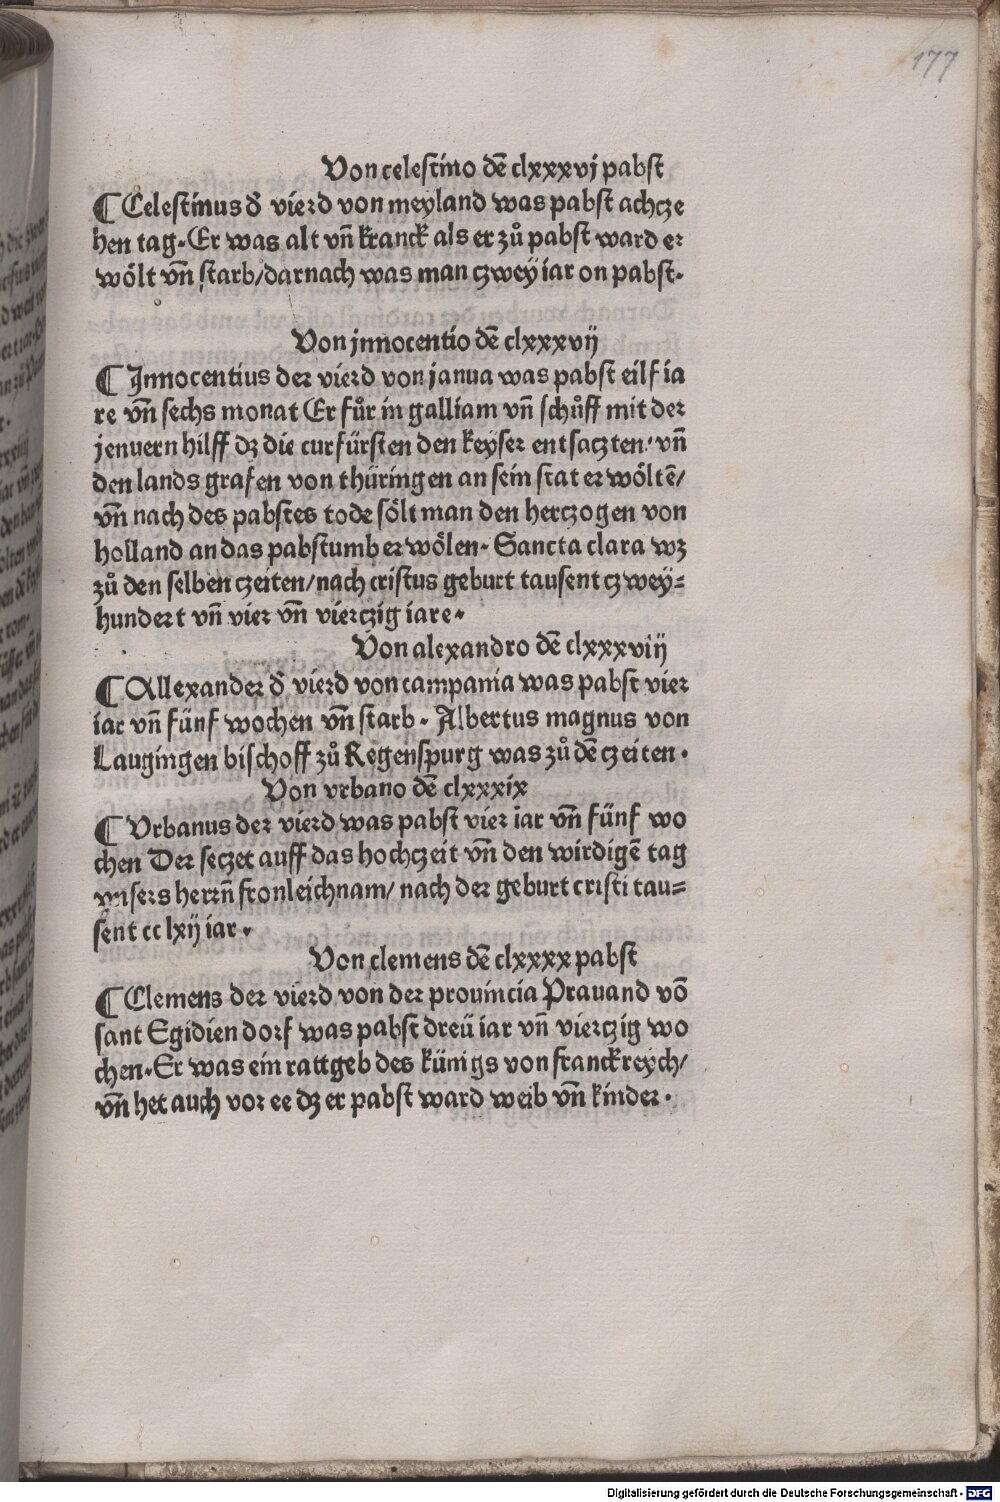 177
Von celestino dē clxxxvj pabst
¶ Celestinus d̕ vierd von meyland was pabst achcze
hen tag. Er was alt vn̄ kranck als er zů pabst ward er
wőlt vn̄ starb/ darnach was man czwey iar on pabst.
Von jnnocentio dē clxxxvij
¶ Jnnocentius der vierd von janua was pabst eilf ia
re vn̄ sechs monat Er fůr in galliam vn̄ schůff mit der
jenuern hilff dz die curfürsten den keyser entsaczten/ vn̄
den lands grafen von thüringen an sein stat erwőltē/
vn̄ nach des pabstes tode sőlt man den herczogen von
holland an das pabstumb erwőlen. Sancta clara wz
zů den selben czeiten/ nach cristus geburt tausent czwey-
hundert vn̄ vier vn̄ vierczig iare.
Von alexandro dē clxxxviij
¶ Allexander d̕ vierd von campania was pabst vier
iar vn̄ fünf wochen vn̄ starb. Albertus magnus von
Laugingen bischoff zů Regenspurg was zů dē czeiten.
Von vrbano dē clxxxix
¶ Vrbanus der vierd was pabst vier iar vn̄ fünf wo
chen Der seczet auff das hochczeit vn̄ den wirdigē tag
vnsers herrn̄ fronleichnam/ nach der geburt cristi tau-
sent cc lxij iar.
Von clemens dē clxxxx pabst
¶ Clemens der vierd von der prouincia Prauand vō
sant Egidien dorf was pabst dreü iar vn̄ vierczig wo
chen. Er was ein rattgeb des künigs von franckreych/
vn̄ het auch vor ee dz er pabst ward weib vn̄ kinder.
Digitalisierung gefördert durch die Deutsche Forschungsgemeinschaft - DFG